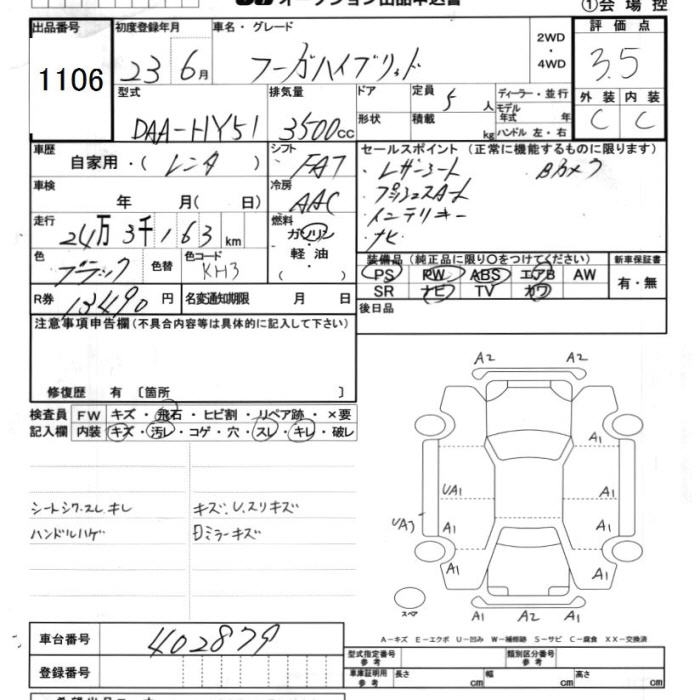 オークション出品申込書
①会場控
出品番号 初度登録年月 車名・グレード 2WD・4WD 評価点
1106 23 6月 フーガハイブリッド 3.5
型式 排気量 ドア 定員 5人 ディーラー・並行 外装 内装
DAA-HY51 3500cc 形状 積載 kg モデル年式 年 ハンドル 左・右 C C
車歴 自家用・(レンタ) シフト FAT セールスポイント (正常に機能するものに限ります)
・レザーシート Bカメラ
車検 年 月( 日) 冷房 AAC ・プッシュスタート
・インテリキー
走行 24万3千163km 燃料 ガソリン・軽油 ( ) ・ナビ
色 ブラック 色替 色コード KH3 装備品 (純正品に限り○をつけてください) 新車保証書
PS PW ABS エアB AW 有・無
SR ナビ TV カワ
R券 13490円 名変通知期限 月 日 後日品
注意事項申告欄(不具合内容等は具体的に記入して下さい)
修復歴 有 〔箇所 〕
検査員 FW キズ・飛石・ヒビ割・リペア跡・×要
記入欄 内装 キズ・汚レ・コゲ・穴・スレ・キレ・破レ
シートシワ.スレ.キレ キズ、U.スリキズ
ハンドルハゲ ミラーキズ
A2 A2
A1
UA1 A1
UA3 A1 A1
A1 A1
スペア A1 A2 A1
A-キズ E-エクボ U-凹み W-補修跡 S-サビ C-腐食 XX-交換済
車台番号 402879
型式指定番号 参考 類別区分番号 参考
登録番号 車庫証明用 参考 長さ cm 幅 cm 高さ cm